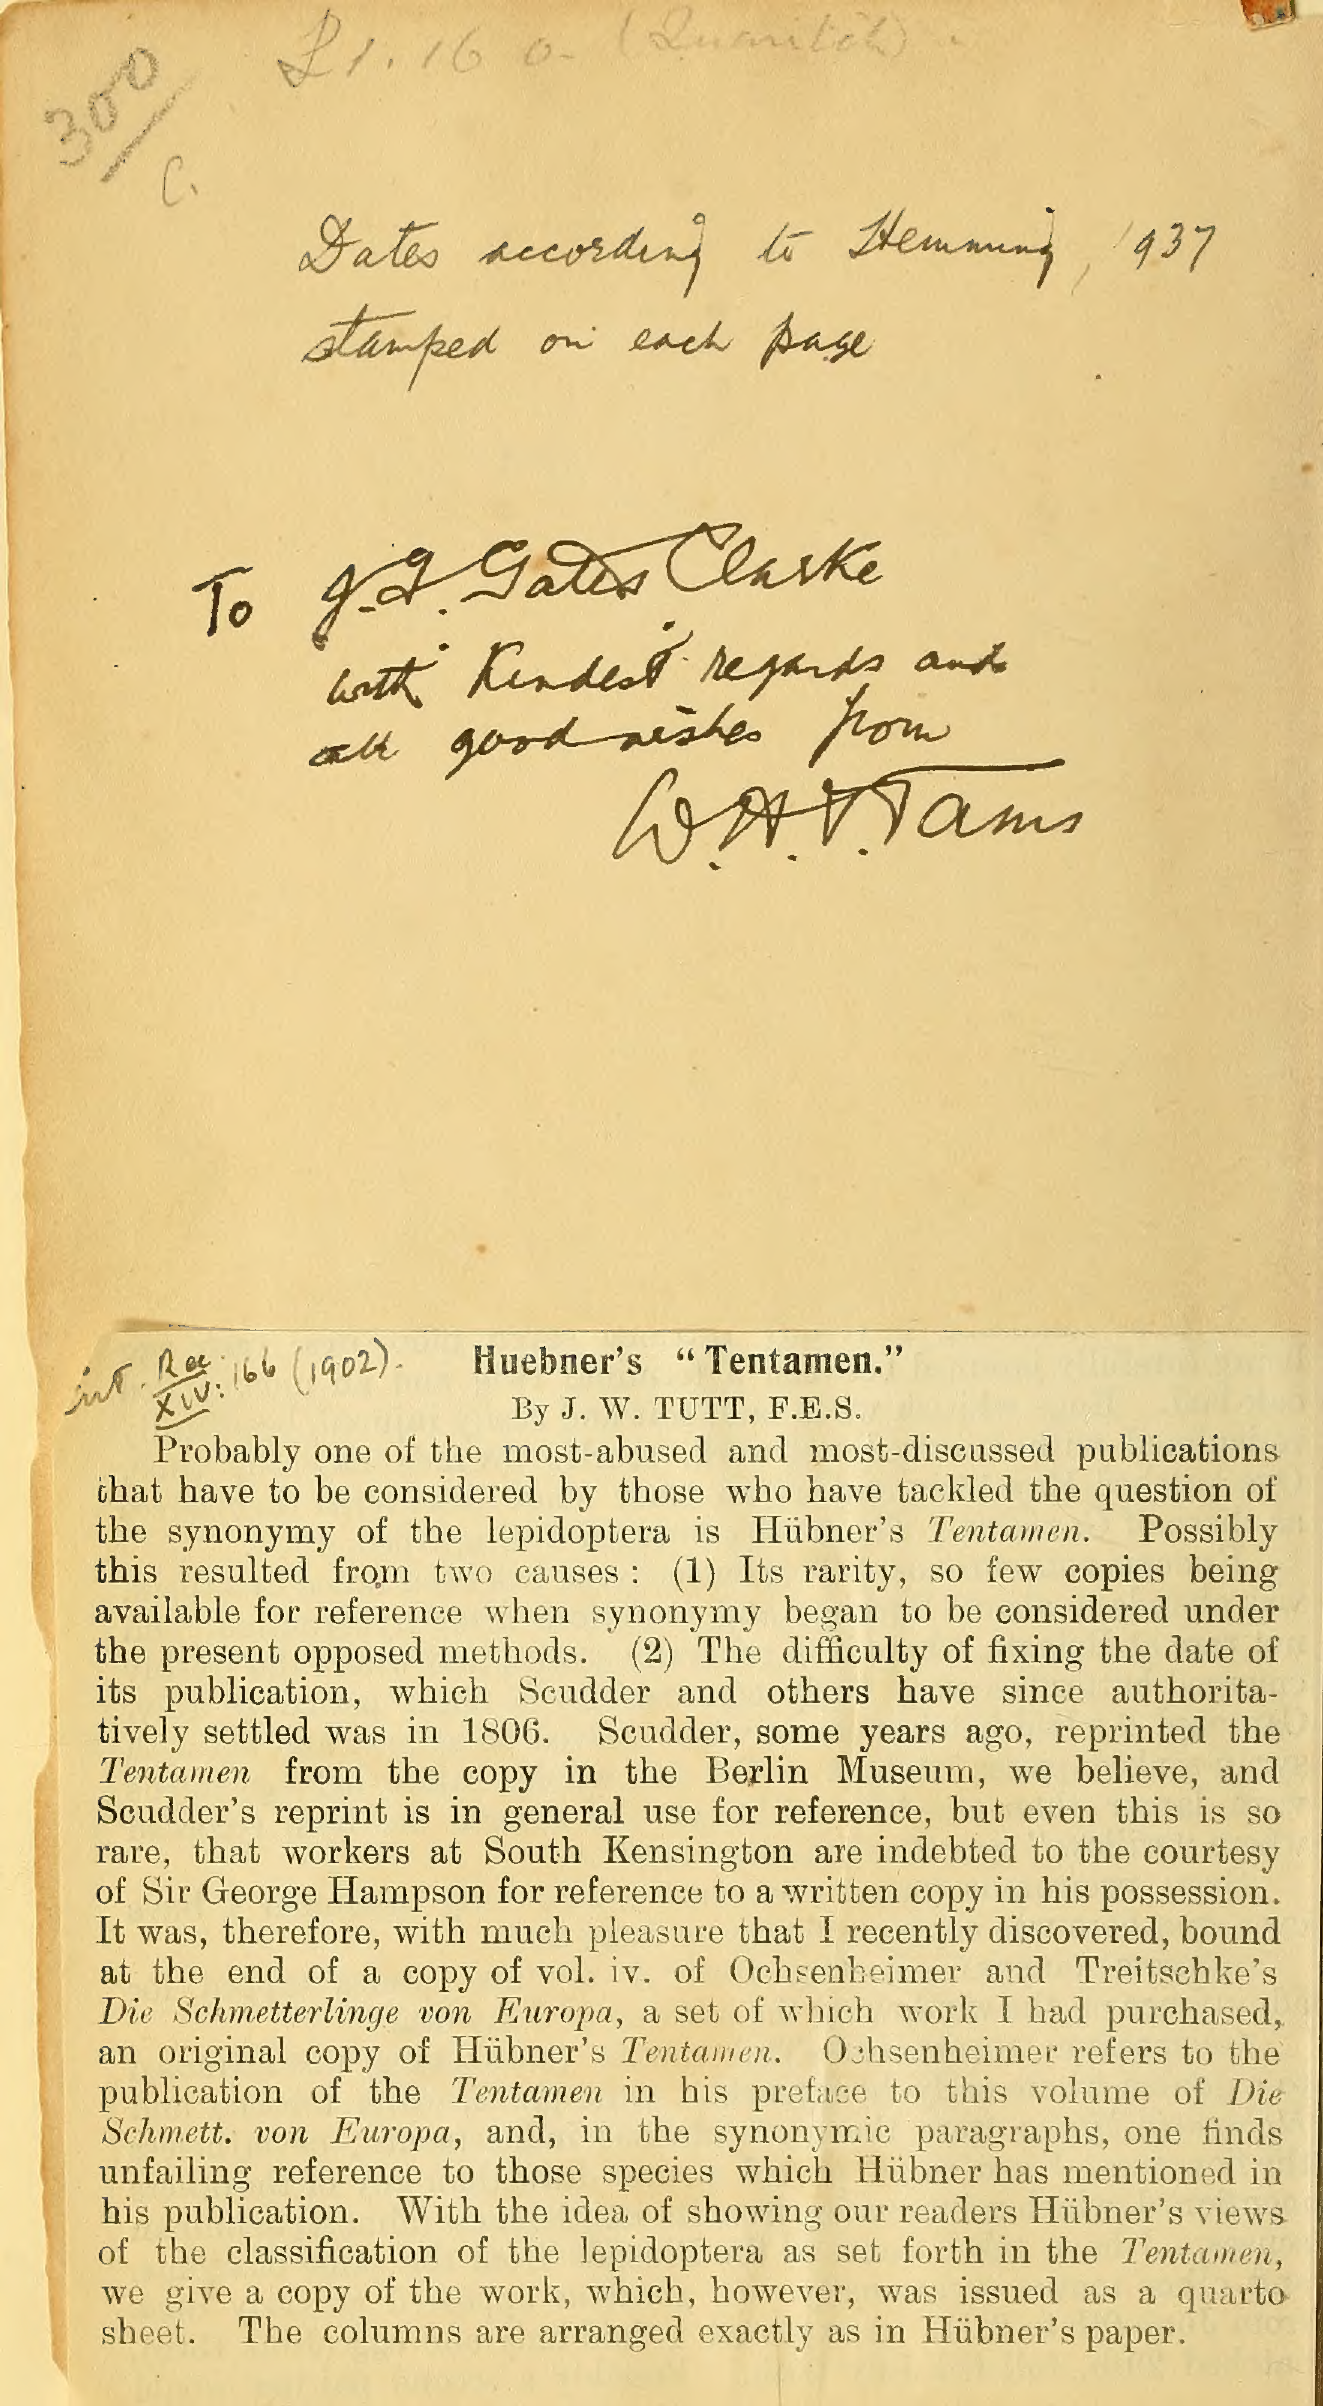 £1. 16 0- (Quaritch)
300/
C.
Dates according to Hemming, 1937
stamped on each page
To J. F. Gates Clarke
with kindest regards and
all good wishes from
W. H. T. Tams
Ent. Rec. XIV: 166 (1902).
Huebner's "Tentamen."
By J. W. TUTT, F.E.S.
Probably one of the most-abused and most-discussed publications
that have to be considered by those who have tackled the question of
the synonymy of the lepidoptera is Hübner's Tentamen. Possibly
this resulted from two causes : (1) Its rarity, so few copies being
available for reference when synonymy began to be considered under
the present opposed methods. (2) The difficulty of fixing the date of
its publication, which Scudder and others have since authorita-
tively settled was in 1806. Scudder, some years ago, reprinted the
Tentamen from the copy in the Berlin Museum, we believe, and
Scudder's reprint is in general use for reference, but even this is so
rare, that workers at South Kensington are indebted to the courtesy
of Sir George Hampson for reference to a written copy in his possession.
It was, therefore, with much pleasure that I recently discovered, bound
at the end of a copy of vol. iv. of Ochsenheimer and Treitschke's
Die Schmetterlinge von Europa, a set of which work I had purchased,
an original copy of Hübner's Tentamen. Ochsenheimer refers to the
publication of the Tentamen in his preface to this volume of Die
Schmett. von Europa, and, in the synonymic paragraphs, one finds
unfailing reference to those species which Hübner has mentioned in
his publication. With the idea of showing our readers Hübner's views
of the classification of the lepidoptera as set forth in the Tentamen,
we give a copy of the work, which, however, was issued as a quarto
sheet. The columns are arranged exactly as in Hübner's paper.